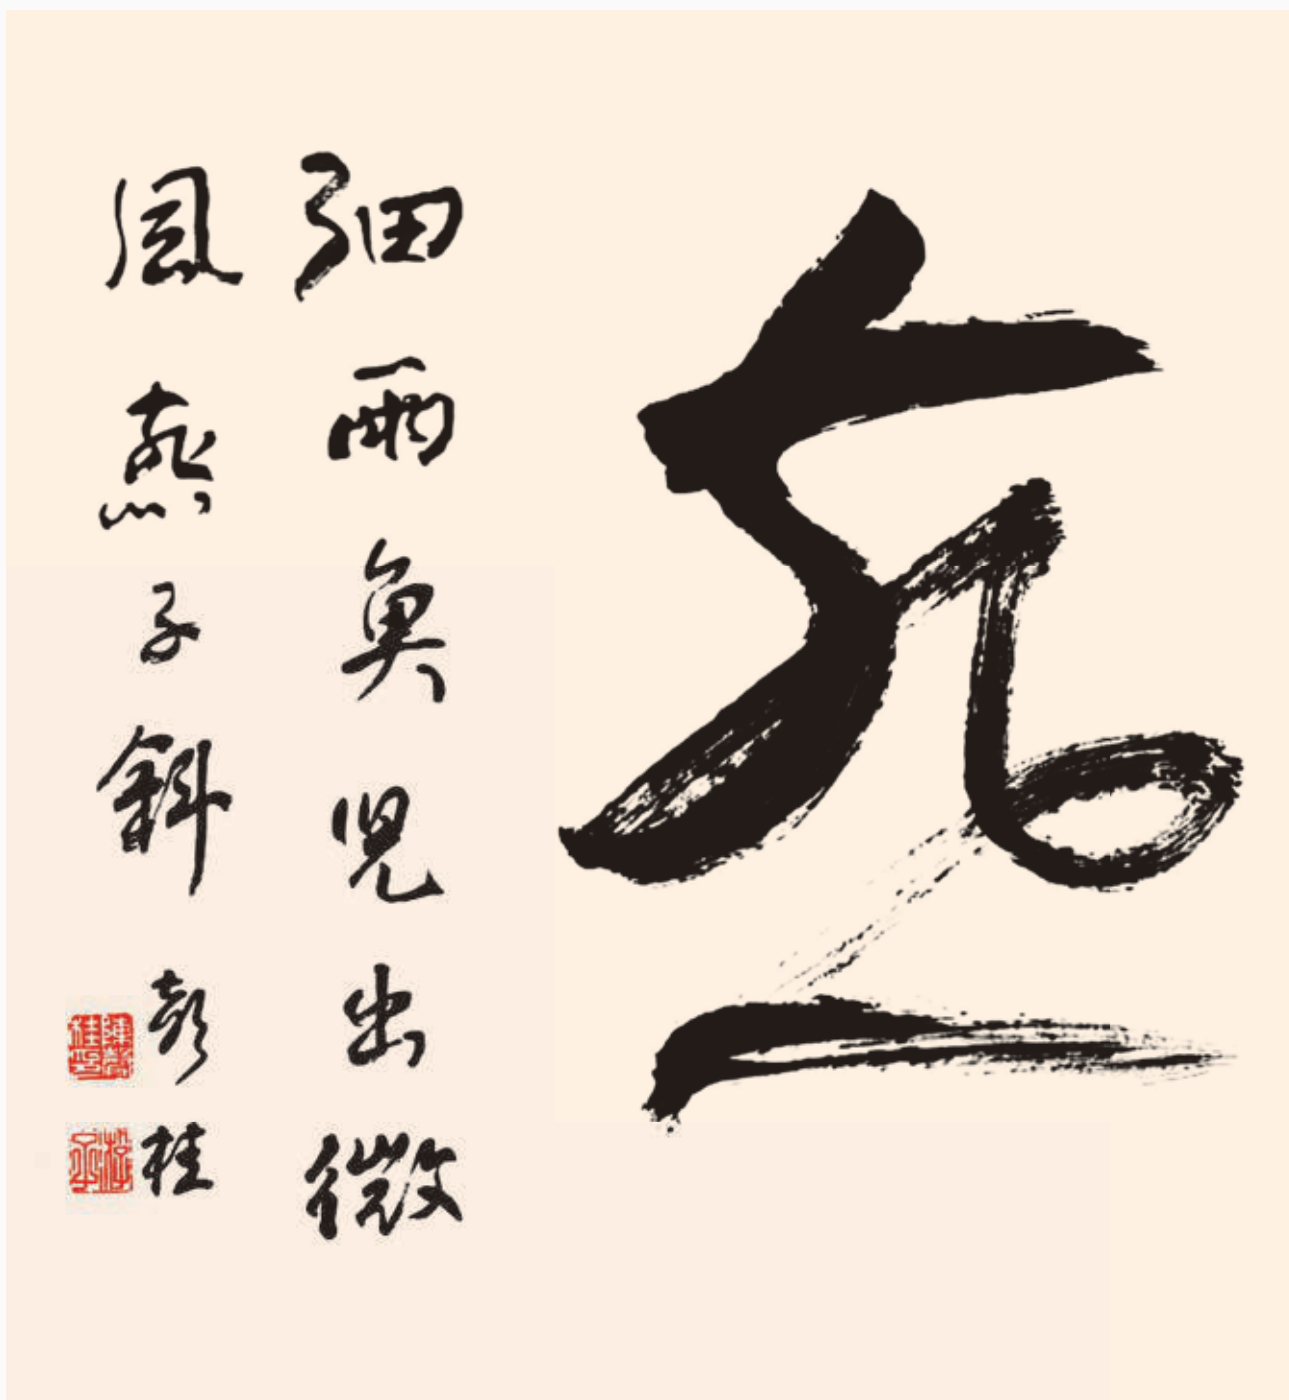 細雨魚兒出微
風燕子斜 彭桂